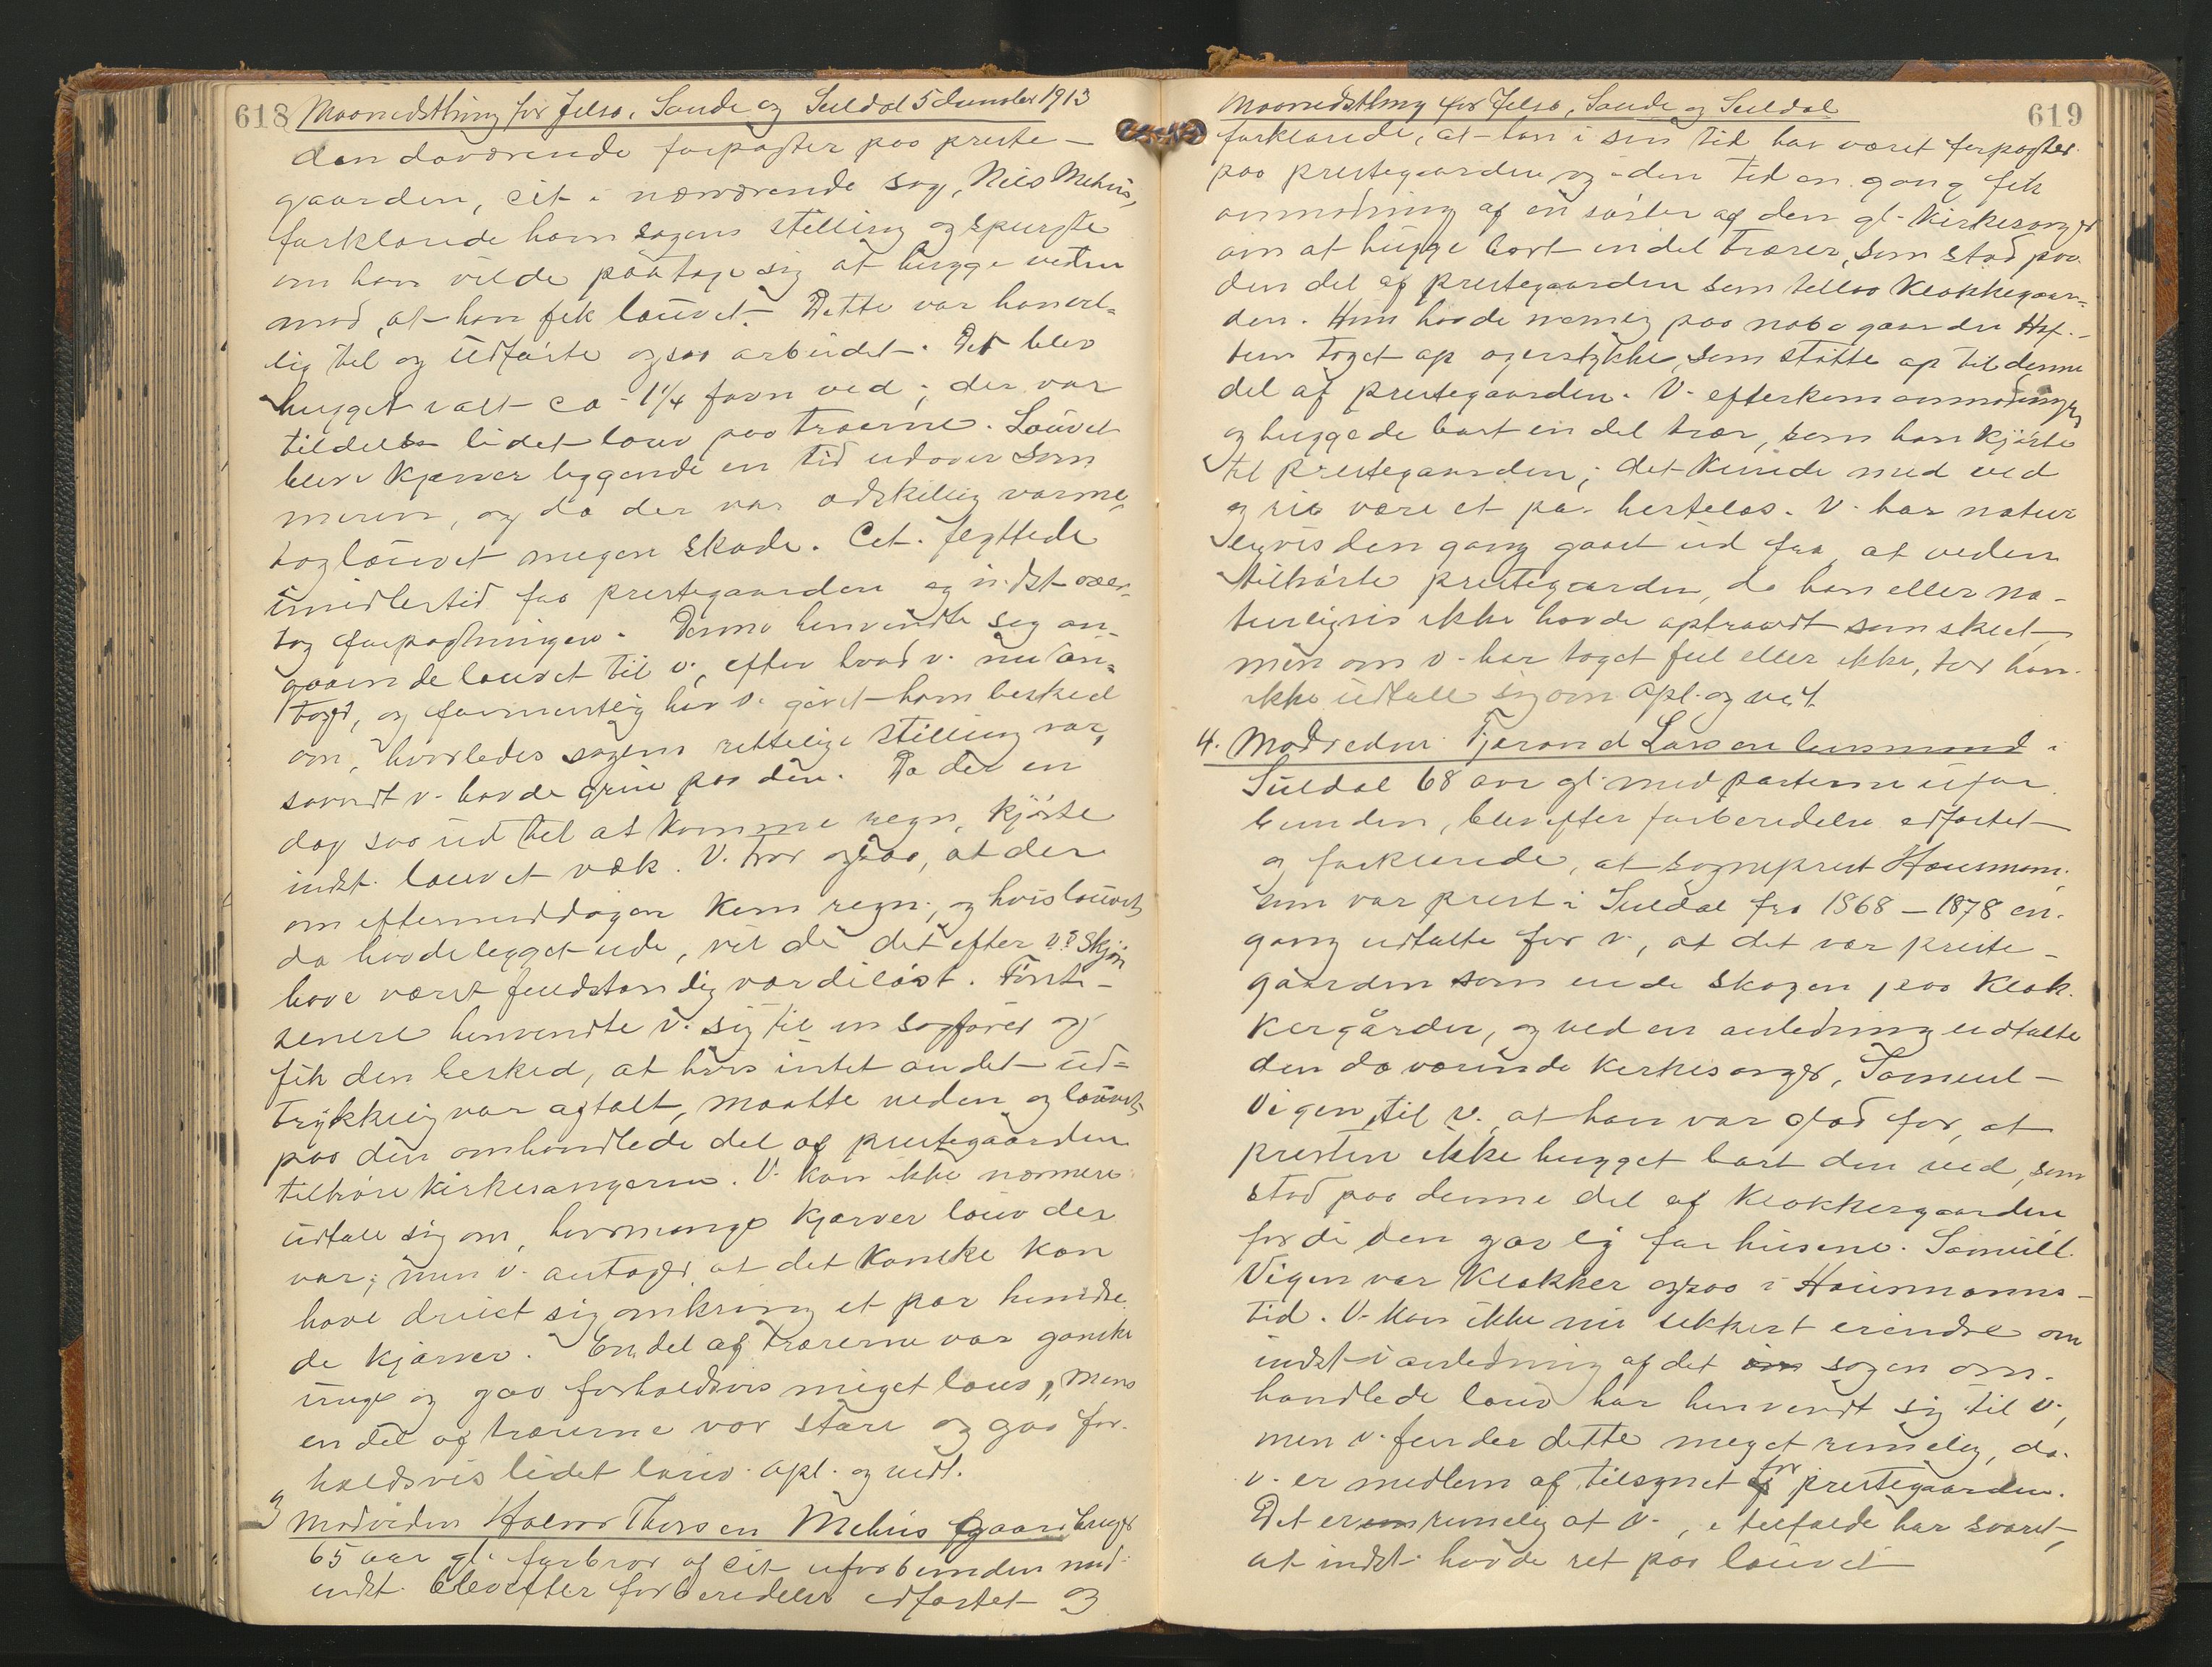 618 Maanedsthing for Jelsø, Sande og Suldal 5 december 1913
den daværende forpagter paa preste-
gaarden, cit. i nærværende sag, Nils Mehus,
forklarede ham sagens stilling og spurgte
om han vilde paatage sig at hugge veden
mod, at han fik lauvet. Dette var han vil-
lig til og udførte ogsaa arbeidet. Det blev
hugget ialt ca. 1 1/4 favn ved; der var
tildels lidet lauv paa træerne. Lauvet
blev i kjærver liggende en tid udover som
meren, og da der var adskillig varme,
tog lauvet megen skade. Cit. flyttede
imidlertid fra prestegaarden og indst. over-
tog forpagtningen. Denne henvendte seg an-
gaaende lauvet til v., efter hvad v. nu an-
tager, og formentlig har v. givet ham besked
om, hvorledes sagens rettelige stilling var,
savidt v. havde greie paa den. Da det en
dag saa ud til at komme regn, kjørte
indst. lauvet væk. V. tror ogsaa, at der
om eftermiddagen kom regn, og hvis lauvet
da havde ligget ude, vil de det efter v.s skjøn
have været fuldstændig værdiløst. Først
senere henvendte v. sig til en sagfører og
fik den besked, at hvis intet andet ud-
trykkelig var aftalt, maatte veden og lauvet
paa den omhandlede del af prestegaarden
tilhøre kirkesangeren. V. kan ikke nærmere
udtale sig om, hvormange kjærver lauv der
var; men v. antager, at det kanske kan
have dreiet sig omkring et par hundre-
de kjærver. En del af træerne var ganske
unge og gav forholdsvis meget lauv, mens
en del af træerne var større og gav for-
holdsvis lidet lauv. Opl. og vedt.
3 Modvidne Halvor Thorsen Mehus gaardbruger
65 aar gl. farbror af cit. uforbunden med
indst. blev efter forberedelse edfæstet og
Maanedsthing for Jelsø, Sande og Suldal 619
forklarede, at han i sin tid har været forpagter
paa prestegaarden og i den tid en gang fik
anmodning af en søster af den gl. kirkesanger
om at hugge bort en del trærer, som stod paa
den del af prestegaarden som tillaa klokkergaar-
den. Hun havde nemlig paa nabogaarden
tem taget op agerstykke, som støtte op til denne
del af prestegaarden. V. efterkom anmodningen
og huggede bort en del trær, som han kjørte
til prestegaarden; det kunde med ved
og ris være et par hestelas. V. har natur
ligvis den gang gaaet ud fra, at veden
tilhørte prestegaarden, da han ellers na-
turligvis ikke havde optraadt som skeet,
men om v. har taget feil eller ikke, tør han
ikke udtale sig om. Opl. og vedt.
4. Modvidne Tjerand Larsen lensmand i
Suldal 68 aar gl. med parterne ufor
bunden, blev efter forberedelse edfæstet
og forklarede, at sogneprest Hausmann,
som var prest i Suldal fra 1868 – 1878 en-
gang udtalte for v., at det var preste-
gaarden som eiede skogen paa klok-
kergården, og ved en anledning udtalte
den daværende kirkesanger, Samuel
Vigen, til v., at han var glad for, at
presten ikke hugget bort den ved, som
stod paa denne del af klokkergaarden
fordi den gav ly for husene. Samuel
Vigen var klokker ogsaa i Hausmanns
tid. V. kan ikke nu sikkert erindre om
indst. i anledning af det i sagen om-
handlede lauv har henvendt sig til v.,
men v. finder dette meget rimelig, da
v. er medlem af tilsynet for prestegaarden.
Det er rimelig at v., i tilfælde har svaret,
at indst. havde ret paa lauvet